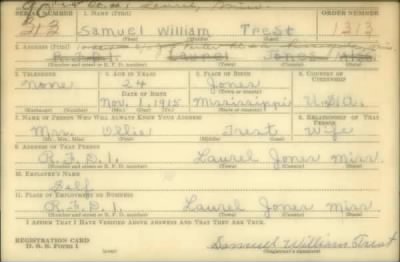 Laurel, Miss
SERIAL NUMBER 1. NAME (Print) ORDER NUMBER
313 Samuel William Trest 1313
2. ADDRESS (Print)
R.F.D.1. Laurel Jones Miss
(Number and street or R. F. D. number) (Town) (County) (State)
3. TELEPHONE 4. AGE IN YEARS 5. PLACE OF BIRTH 6. COUNTRY OF CITIZENSHIP
none 24 Jones
DATE OF BIRTH (Town or county)
Nov. 1, 1915 Mississippi U.S.A.
(Exchange) (Number) (Mo.) (Day) (Yr.) (State or country)
7. NAME OF PERSON WHO WILL ALWAYS KNOW YOUR ADDRESS 8. RELATIONSHIP OF THAT PERSON
Mrs. Ollie Trest Wife
(Mr., Mrs., Miss) (First) (Middle) (Last)
9. ADDRESS OF THAT PERSON
R.F.D.1. Laurel Jones Miss.
(Number and street or R. F. D. number) (Town) (County) (State)
10. EMPLOYER'S NAME
Self
11. PLACE OF EMPLOYMENT OR BUSINESS
Laurel Jones Miss
(Number and street or R. F. D. number) (Town) (County) (State)
I AFFIRM THAT I HAVE VERIFIED ABOVE ANSWERS AND THAT THEY ARE TRUE.
REGISTRATION CARD
D. S. S. FORM 1 (over) Samuel William Trest
(Registrant's signature)